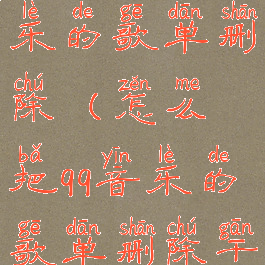 lè de gē dān shān
乐的歌单删
chú zěn me
除(怎么
bǎ yīn lè de
把qq音乐的
gē dān shān chú gān
歌单删除干